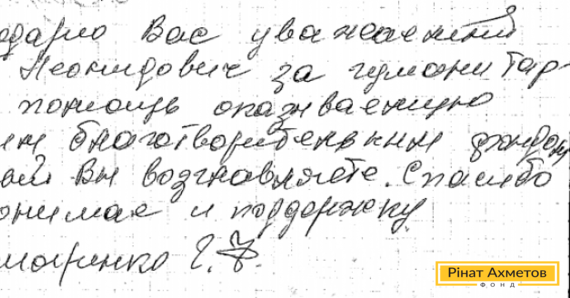 одарю Вас уважаемый
Леонидович за гуманитар-
помощь оказываемую
им благотворительным фондом
рый Вы возглавляете. Спасибо
онимае и поддержку
Г. Ф.
Рінат Ахметов
ФОНД